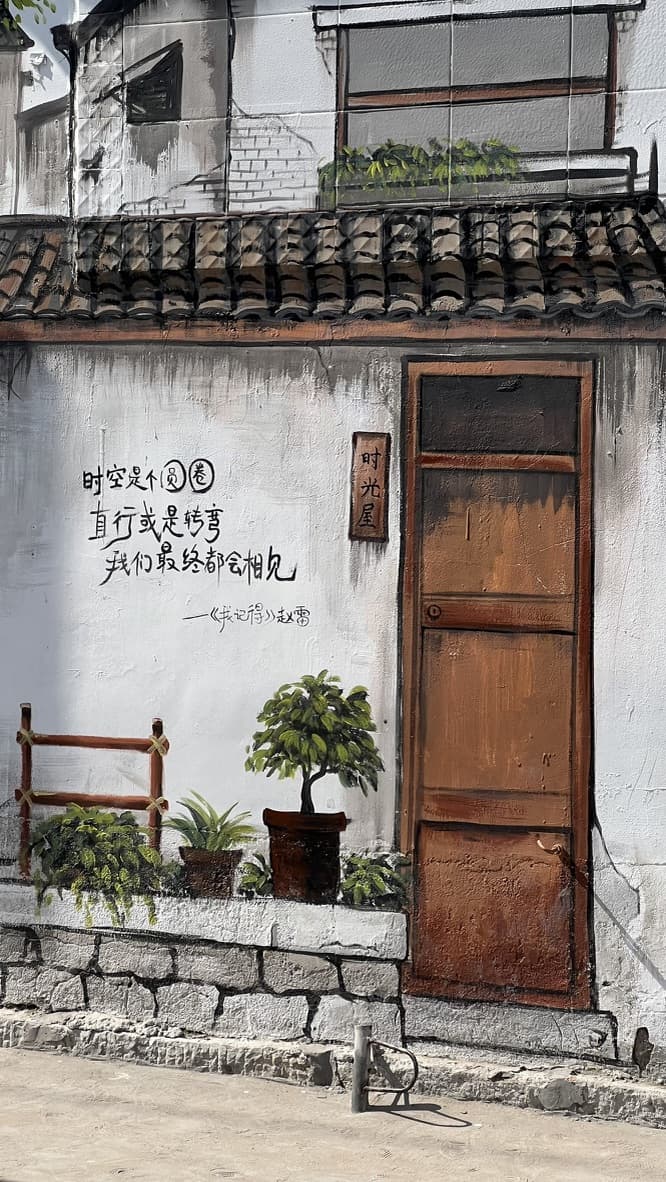 时空是个圆卷
直行或是转弯
我们最终都会相见
—《我记得》赵雷
时光屋